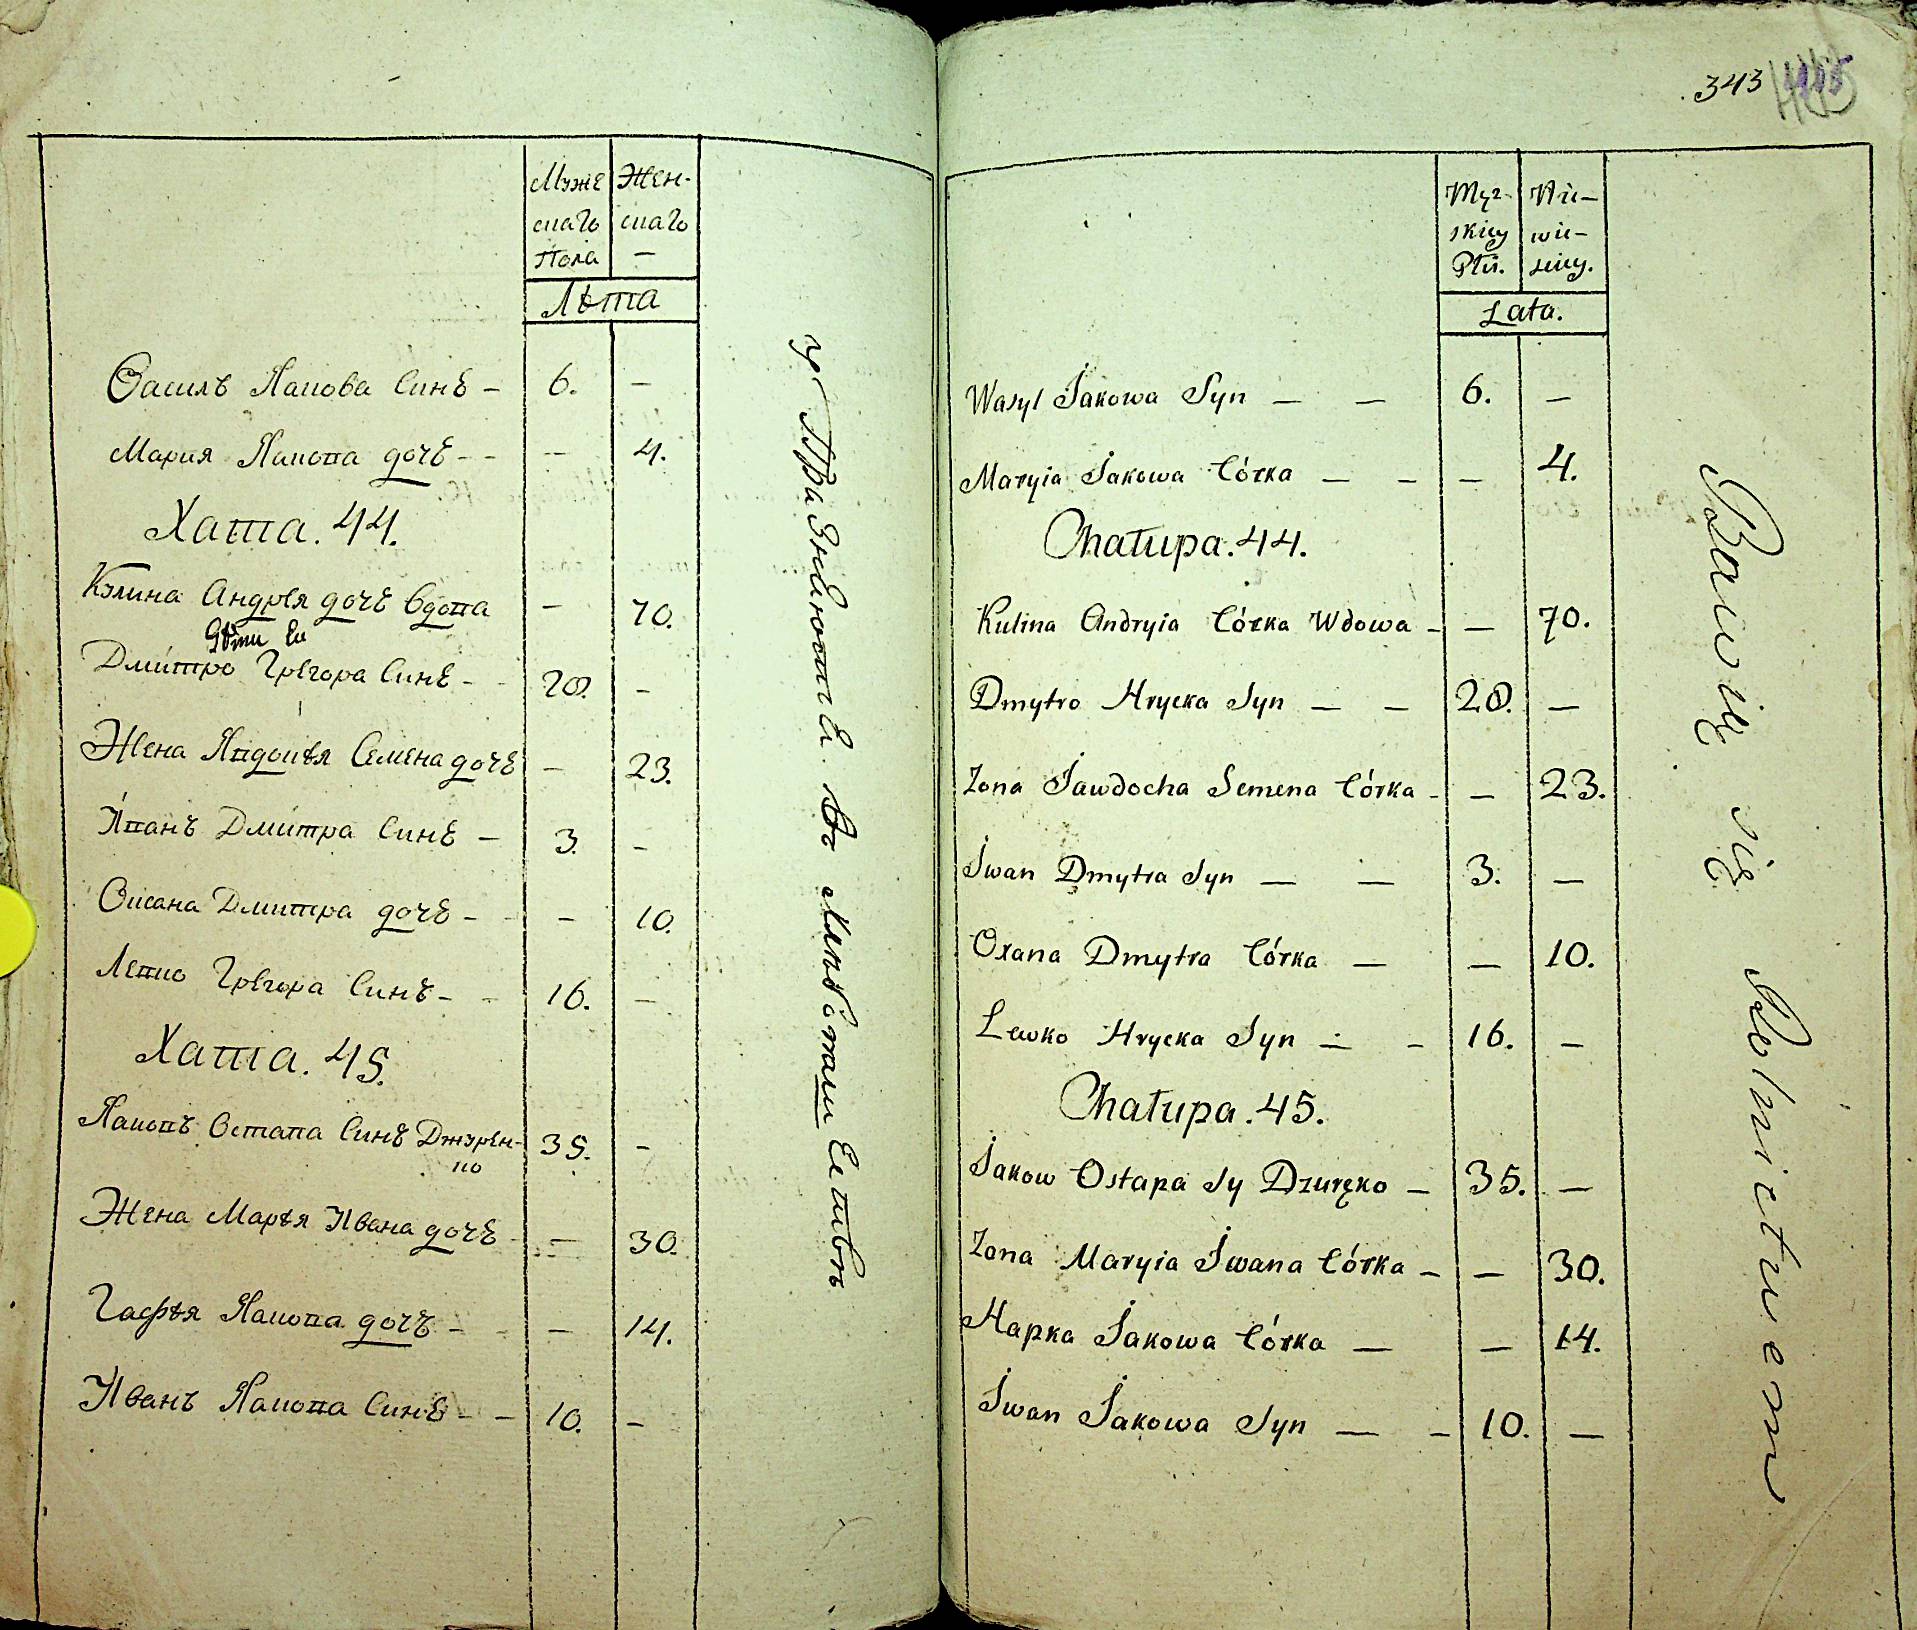 Муже Жен-
скаго скаго
Пола —
Лѣта
Василъ Якова Синъ — 6. —
Мария Якова дочъ - - — 4.
Хата. 44.
Кулина Андрѣя дочъ вдова — 70.
Дѣти Ея
Дмитро Грегора Синъ - - 20. —
Жена Явдокѣя Семена дочъ — 23.
Иванъ Дмитра Синъ — 3. —
Оксана Дмитра дочъ - - — 10.
Левко Грегора Синъ - - 16. —
Хата. 45.
Яковъ Остапа Синъ Джурен- 35. —
ко
Жена Марѣя Ивана дочъ — 30.
Гафѣя Якова дочъ - - — 14.
Иванъ Якова Синъ - - 10. —
343
Męz- Nie-
skiey wie-
Płci. sciey.
Lata.
Wasyl Jakowa Syn — — 6. —
Maryia Jakowa Córka — - — 4.
Chałupa. 44.
Kulina Andryia Córka Wdowa - — 70.
Dmytro Hrycka Syn — — 20. —
Zona Jawdocha Semena Córka - — 23.
Jwan Dmytra Syn — — 3. —
Oxana Dmytra Córka — — 10.
Lewko Hrycka Syn — - 16. —
Chałupa. 45.
Jakow Ostapa Sy Dzuręko — 35. —
Zona Maryia Jwana Córka — — 30.
Hapka Jakowa Córka — — 14.
Jwan Jakowa Syn — - 10. —
Bawią się Rolnictwem